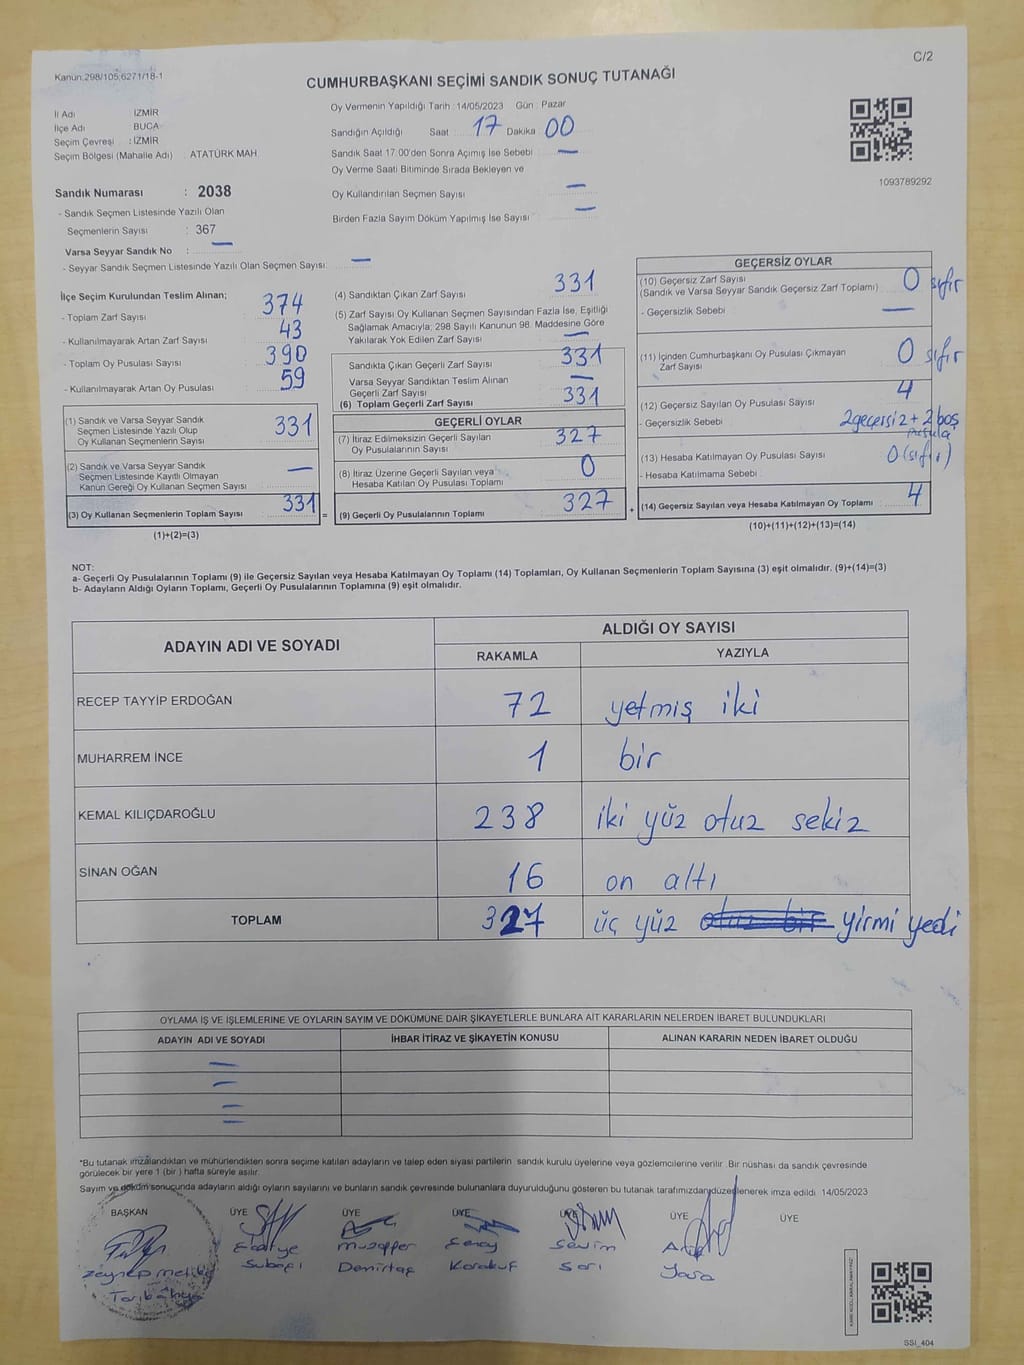 C/2
Kanun:298/105,6271/18-1
CUMHURBAŞKANI SEÇİMİ SANDIK SONUÇ TUTANAĞI
İl Adı İZMİR
İlçe Adı BUCA
Seçim Çevresi : İZMİR
Seçim Bölgesi (Mahalle Adı) : ATATÜRK MAH
Sandık Numarası : 2038
- Sandık Seçmen Listesinde Yazılı Olan
Seçmenlerin Sayısı : 367
Varsa Seyyar Sandık No : —
- Seyyar Sandık Seçmen Listesinde Yazılı Olan Seçmen Sayısı: —
Oy Vermenin Yapıldığı Tarih :14/05/2023 Gün : Pazar
Sandığın Açıldığı Saat 17 Dakika 00
Sandık Saat 17:00'den Sonra Açımış İse Sebebi —
Oy Verme Saati Bitiminde Sırada Bekleyen ve
Oy Kullandırılan Seçmen Sayısı —
Birden Fazla Sayım Döküm Yapılmış İse Sayısı —
1093789292
İlçe Seçim Kurulundan Teslim Alınan;
- Toplam Zarf Sayısı 374
- Kullanılmayarak Artan Zarf Sayısı 43
- Toplam Oy Pusulası Sayısı 390
- Kullanılmayarak Artan Oy Pusulası 59
(1) Sandık ve Varsa Seyyar Sandık
Seçmen Listesinde Yazılı Olup
Oy Kullanan Seçmenlerin Sayısı 331
(2) Sandık ve Varsa Seyyar Sandık
Seçmen Listesinde Kayıtlı Olmayan
Kanun Gereği Oy Kullanan Seçmen Sayısı —
(3) Oy Kullanan Seçmenlerin Toplam Sayısı 331 =
(1)+(2)=(3)
(4) Sandıktan Çıkan Zarf Sayısı 331
(5) Zarf Sayısı Oy Kullanan Seçmen Sayısından Fazla İse, Eşitliği
Sağlamak Amacıyla; 298 Sayılı Kanunun 98. Maddesine Göre
Yakılarak Yok Edilen Zarf Sayısı —
Sandıkta Çıkan Geçerli Zarf Sayısı 331
Varsa Seyyar Sandıktan Teslim Alınan
Geçerli Zarf Sayısı —
(6) Toplam Geçerli Zarf Sayısı 331
GEÇERLİ OYLAR
(7) İtiraz Edilmeksizin Geçerli Sayılan
Oy Pusulalarının Sayısı 327
(8) İtiraz Üzerine Geçerli Sayılan veya
Hesaba Katılan Oy Pusulası Toplamı 0
(9) Geçerli Oy Pusulalarının Toplamı 327 +
GEÇERSİZ OYLAR
(10) Geçersiz Zarf Sayısı
(Sandık ve Varsa Seyyar Sandık Geçersiz Zarf Toplamı) 0 sıfır
- Geçersizlik Sebebi —
(11) İçinden Cumhurbaşkanı Oy Pusulası Çıkmayan
Zarf Sayısı 0 sıfır
(12) Geçersiz Sayılan Oy Pusulası Sayısı 4
- Geçersizlik Sebebi 2 geçersiz + 2 boş
pusula
(13) Hesaba Katılmayan Oy Pusulası Sayısı 0 (sıfır)
- Hesaba Katılmama Sebebi
(14) Geçersiz Sayılan veya Hesaba Katılmayan Oy Toplamı 4
(10)+(11)+(12)+(13)=(14)
NOT:
a- Geçerli Oy Pusulalarının Toplamı (9) ile Geçersiz Sayılan veya Hesaba Katılmayan Oy Toplamı (14) Toplamları, Oy Kullanan Seçmenlerin Toplam Sayısına (3) eşit olmalıdır. (9)+(14)=(3)
b- Adayların Aldığı Oyların Toplamı, Geçerli Oy Pusulalarının Toplamına (9) eşit olmalıdır.
ADAYIN ADI VE SOYADI ALDIĞI OY SAYISI
RAKAMLA YAZIYLA
RECEP TAYYİP ERDOĞAN 72 yetmiş iki
MUHARREM İNCE 1 bir
KEMAL KILIÇDAROĞLU 238 iki yüz otuz sekiz
SİNAN OĞAN 16 on altı
TOPLAM 327 üç yüz otuz bir yirmi yedi
OYLAMA İŞ VE İŞLEMLERİNE VE OYLARIN SAYIM VE DÖKÜMÜNE DAİR ŞİKAYETLERLE BUNLARA AİT KARARLARIN NELERDEN İBARET BULUNDUKLARI
ADAYIN ADI VE SOYADI İHBAR İTİRAZ VE ŞİKAYETİN KONUSU ALINAN KARARIN NEDEN İBARET OLDUĞU
—
—
—
—
*Bu tutanak imzalandıktan ve mühürlendikten sonra seçime katılan adayların ve talep eden siyasi partilerin sandık kurulu üyelerine veya gözlemcilerine verilir. Bir nüshası da sandık çevresinde
görülecek bir yere 1 (bir) hafta süreyle asılır.
Sayım ve döküm sonucunda adayların aldığı oyların sayılarını ve bunların sandık çevresinde bulunanlara duyurulduğunu gösteren bu tutanak tarafımızdan düzenlenerek imza edildi. 14/05/2023
BAŞKAN ÜYE ÜYE ÜYE ÜYE ÜYE ÜYE
Zeynep Muzaffer Sevim
Subaşı Demirtaş Sarı Yasa
SSI_404